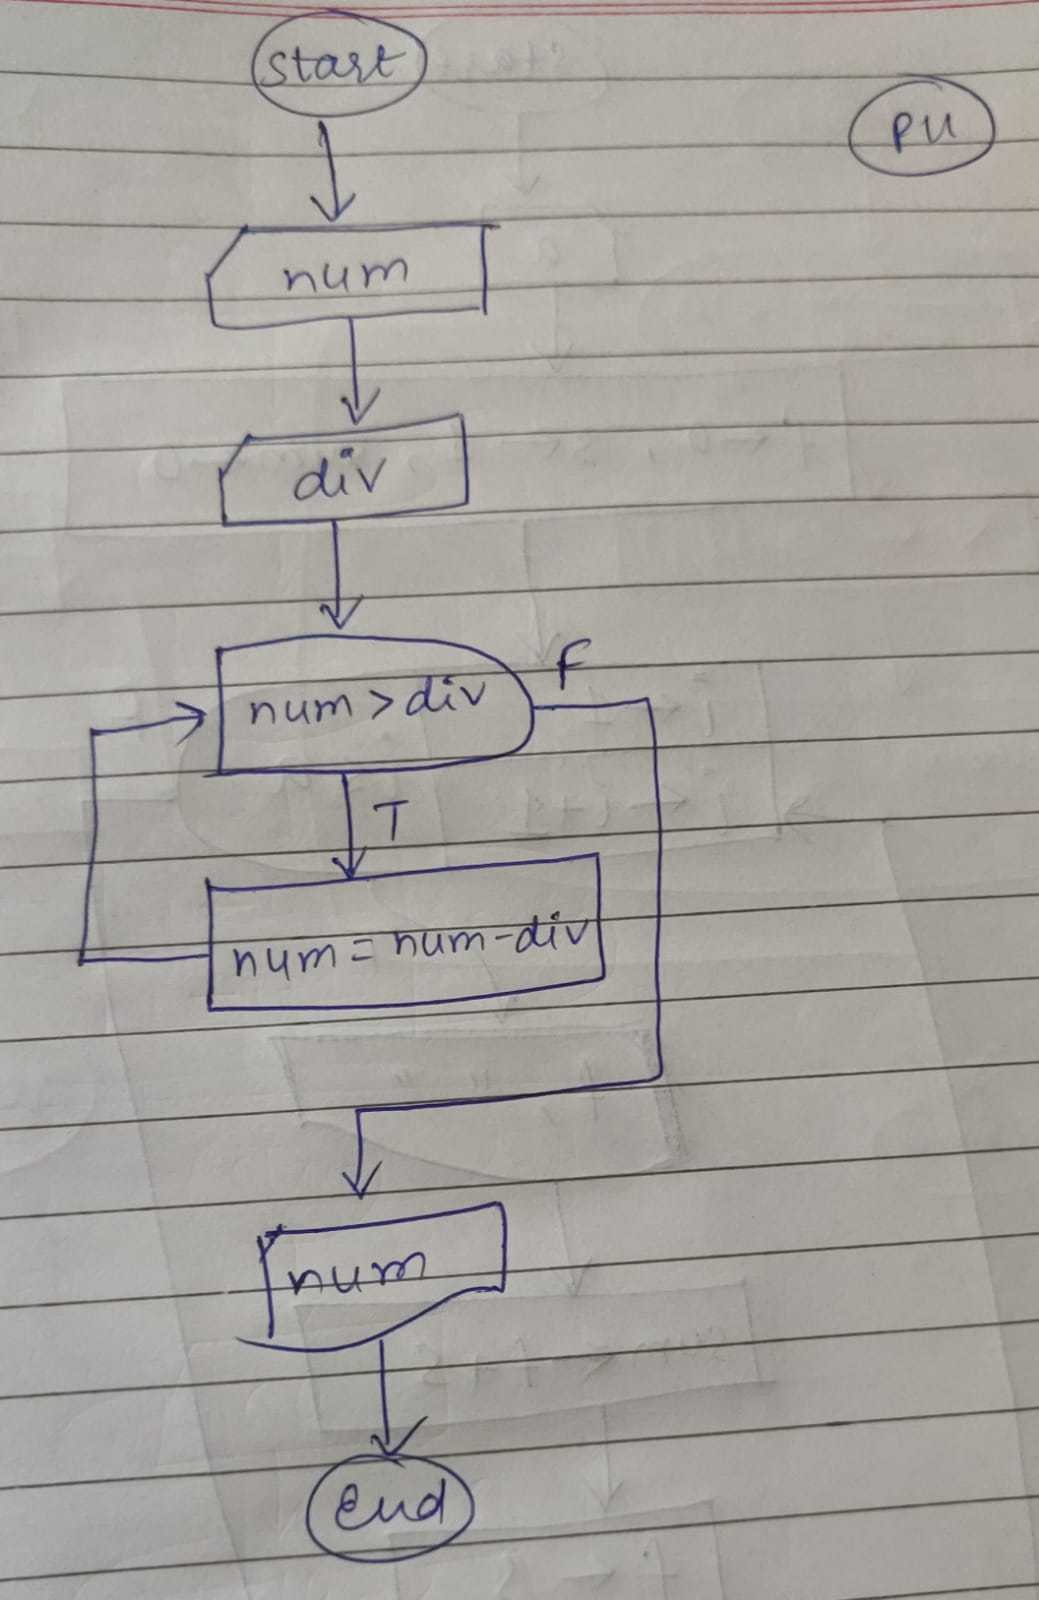 start
PU
num
div
num > div
F
T
num = num - div
num
end